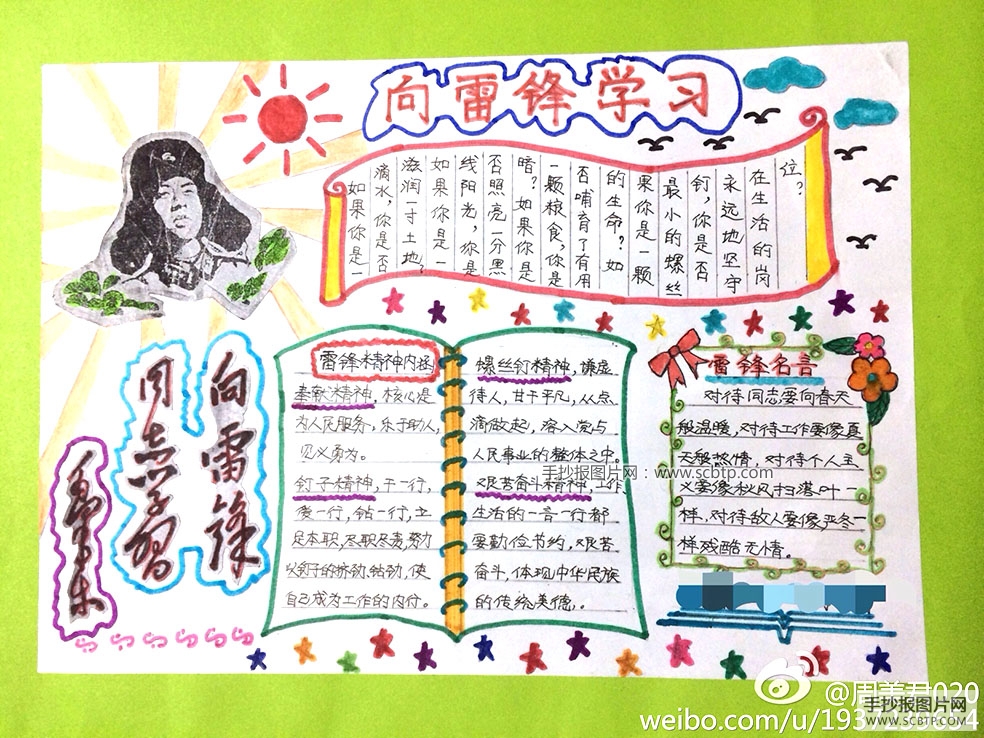 向雷锋学习
如果你是一
滴水，你是否
滋润一寸土地？
如果你是一
线阳光，你是
否照亮一分黑
暗？如果你是
一颗粮食，你是
否哺育了有用
的生命？如
果你是一颗
最小的螺丝
钉，你是否
永远地坚守
在生活的岗
位？
向雷锋
同志学习
毛泽东
雷锋精神内涵
奉献精神，核心是
为人民服务，乐于助人，
见义勇为。
钉子精神，干一行，
爱一行，钻一行，立
足本职，尽职尽责，努力
以钉子的挤劲，钻劲，使
自己成为工作的内行。
螺丝钉精神，谦虚
待人，甘于平凡，从点
滴做起，溶入党与
人民事业的整体之中。
艰苦奋斗精神，工作
生活的一言一行都
要勤俭节约，艰苦
奋斗，体现中华民族
的传统美德。
雷锋名言
对待同志要向春天
般温暖，对待工作要像夏
天般热情，对待个人主
义要像秋风扫落叶一
样，对待敌人要像严冬一
样残酷无情。
手抄报图片网：www.scbtp.com
@周美君020
手抄报图片网
WWW.SCBTP.COM